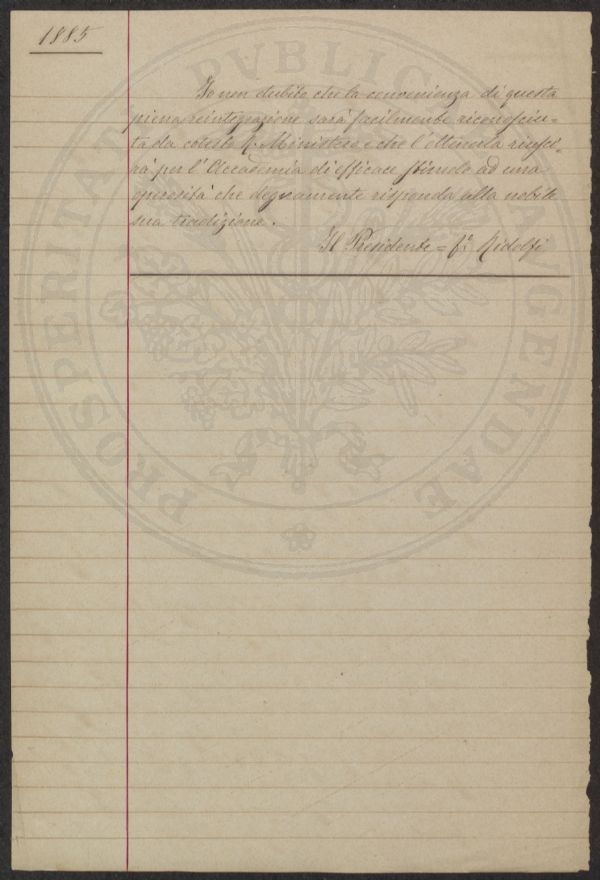 1885
Io non dubito che la convenienza di questa
piena reintegrazione sarà facilmente riconosciu-
ta da cotesto R. Ministero e che l'ottenerla riusci-
rà per l'Accademia di efficace stimolo ad una
operosità che degnamente risponda alla nobile
sua tradizione.
Il Presidente = fo. Ridolfi
PROSPERITATI PVBLICAE AVGENDAE